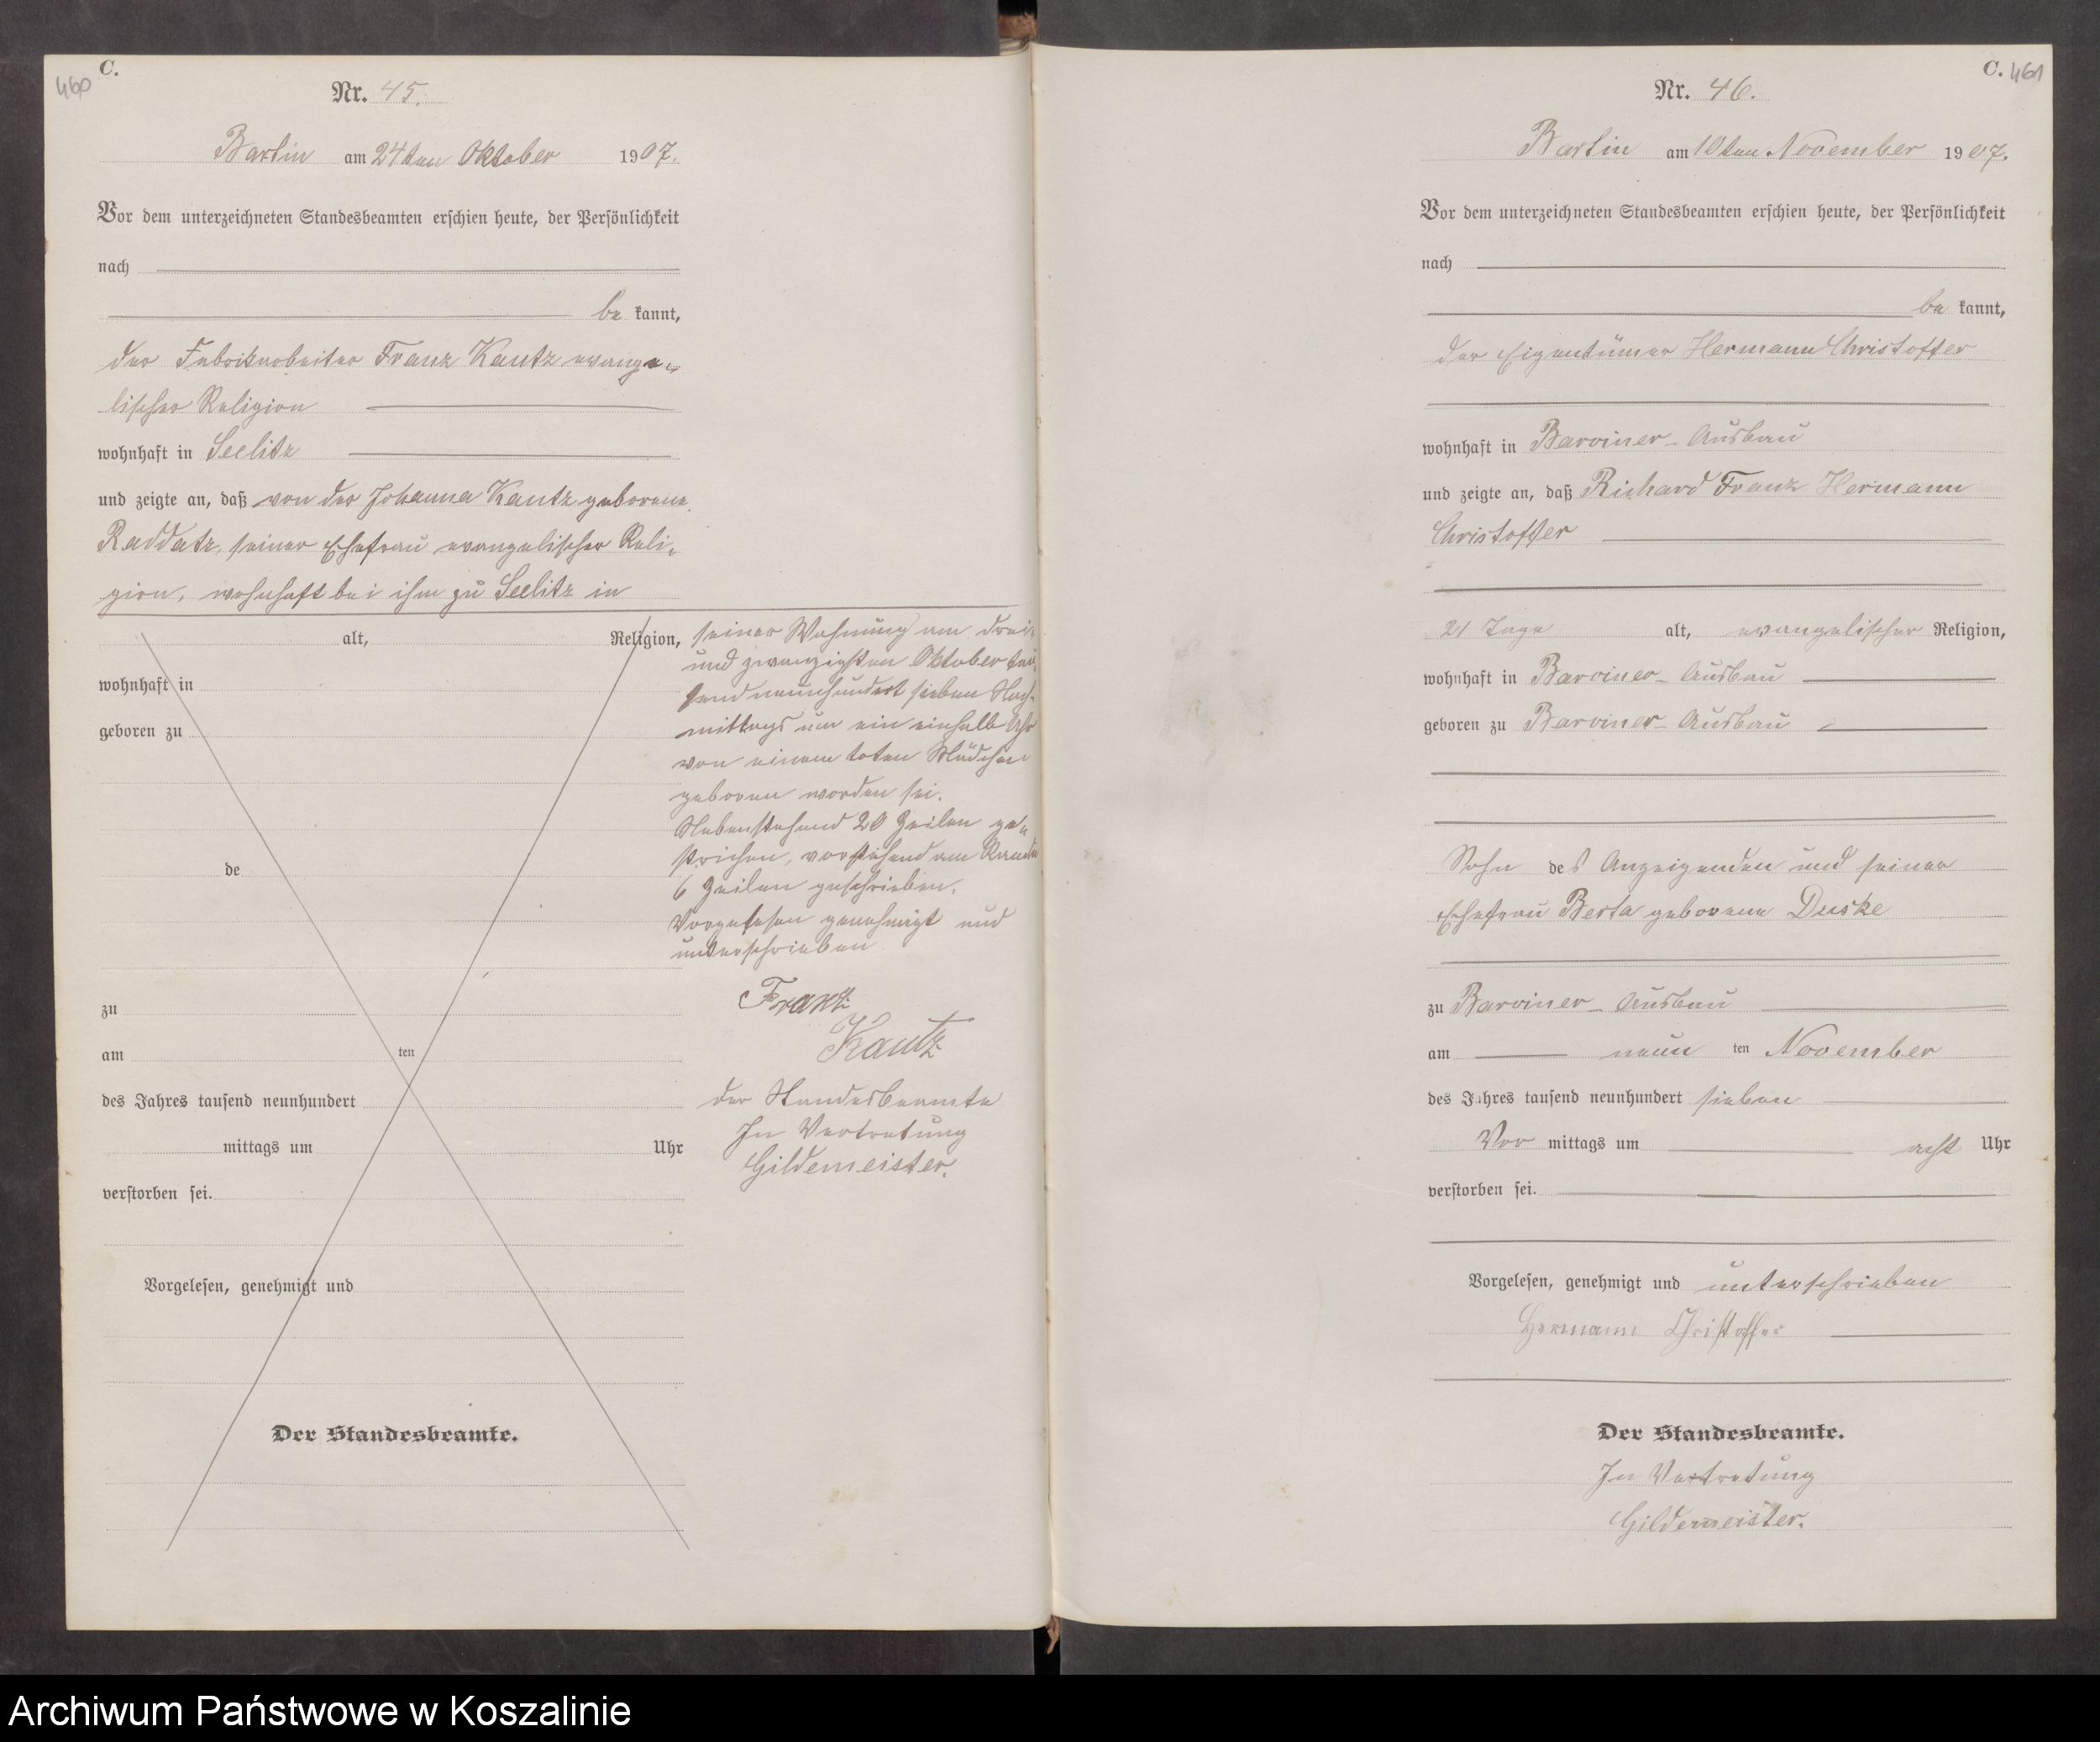 C.
460
Nr. 45.
Bartin am 24ten Oktober 1907.
Vor dem unterzeichneten Standesbeamten erschien heute, der Persönlichkeit
nach
be kannt,
der Fabrikarbeiter Franz Kautz evange-
lischer Religion
wohnhaft in Seelitz
und zeigte an, daß von der Johanna Kautz geborene
Raddatz, seiner Ehefrau evangelischer Reli-
gion, wohnhaft bei ihm zu Seelitz in
alt, Religion,
wohnhaft in
geboren zu
de
zu
am ten
des Jahres tausend neunhundert
mittags um Uhr
verstorben sei.
Vorgelesen, genehmigt und
Der Standesbeamte.
seiner Wohnung am drei-
und zwanzigsten Oktober tau-
send neunhundert sieben Nach-
mittags um ein einhalb Uhr
von einem toten Mädchen
geboren worden sei.
Nebenstehend 20 Zeilen ge-
strichen, vorstehend am Rande
6 Zeilen geschrieben.
Vorgelesen genehmigt und
unterschrieben
Franz
Kautz
der Standesbeamte
In Vertretung
Gildemeister.
C. 461
Nr. 46.
Bartin am 10ten November 1907.
Vor dem unterzeichneten Standesbeamten erschien heute, der Persönlichkeit
nach
be kannt,
der Eigentümer Hermann Christoffer
wohnhaft in Barviner-Ausbau
und zeigte an, daß Richard Franz Hermann
Christoffer
21 Tage alt, evangelischer Religion,
wohnhaft in Barviner-Ausbau
geboren zu Barviner-Ausbau
Sohn des Anzeigenden und seiner
Ehefrau Berta geborene Duske
zu Barviner-Ausbau
am neun ten November
des Jahres tausend neunhundert sieben
Vor mittags um acht Uhr
verstorben sei.
Vorgelesen, genehmigt und unterschrieben
Hermann Christoffer
Der Standesbeamte.
In Vertretung
Gildemeister.
Archiwum Państwowe w Koszalinie